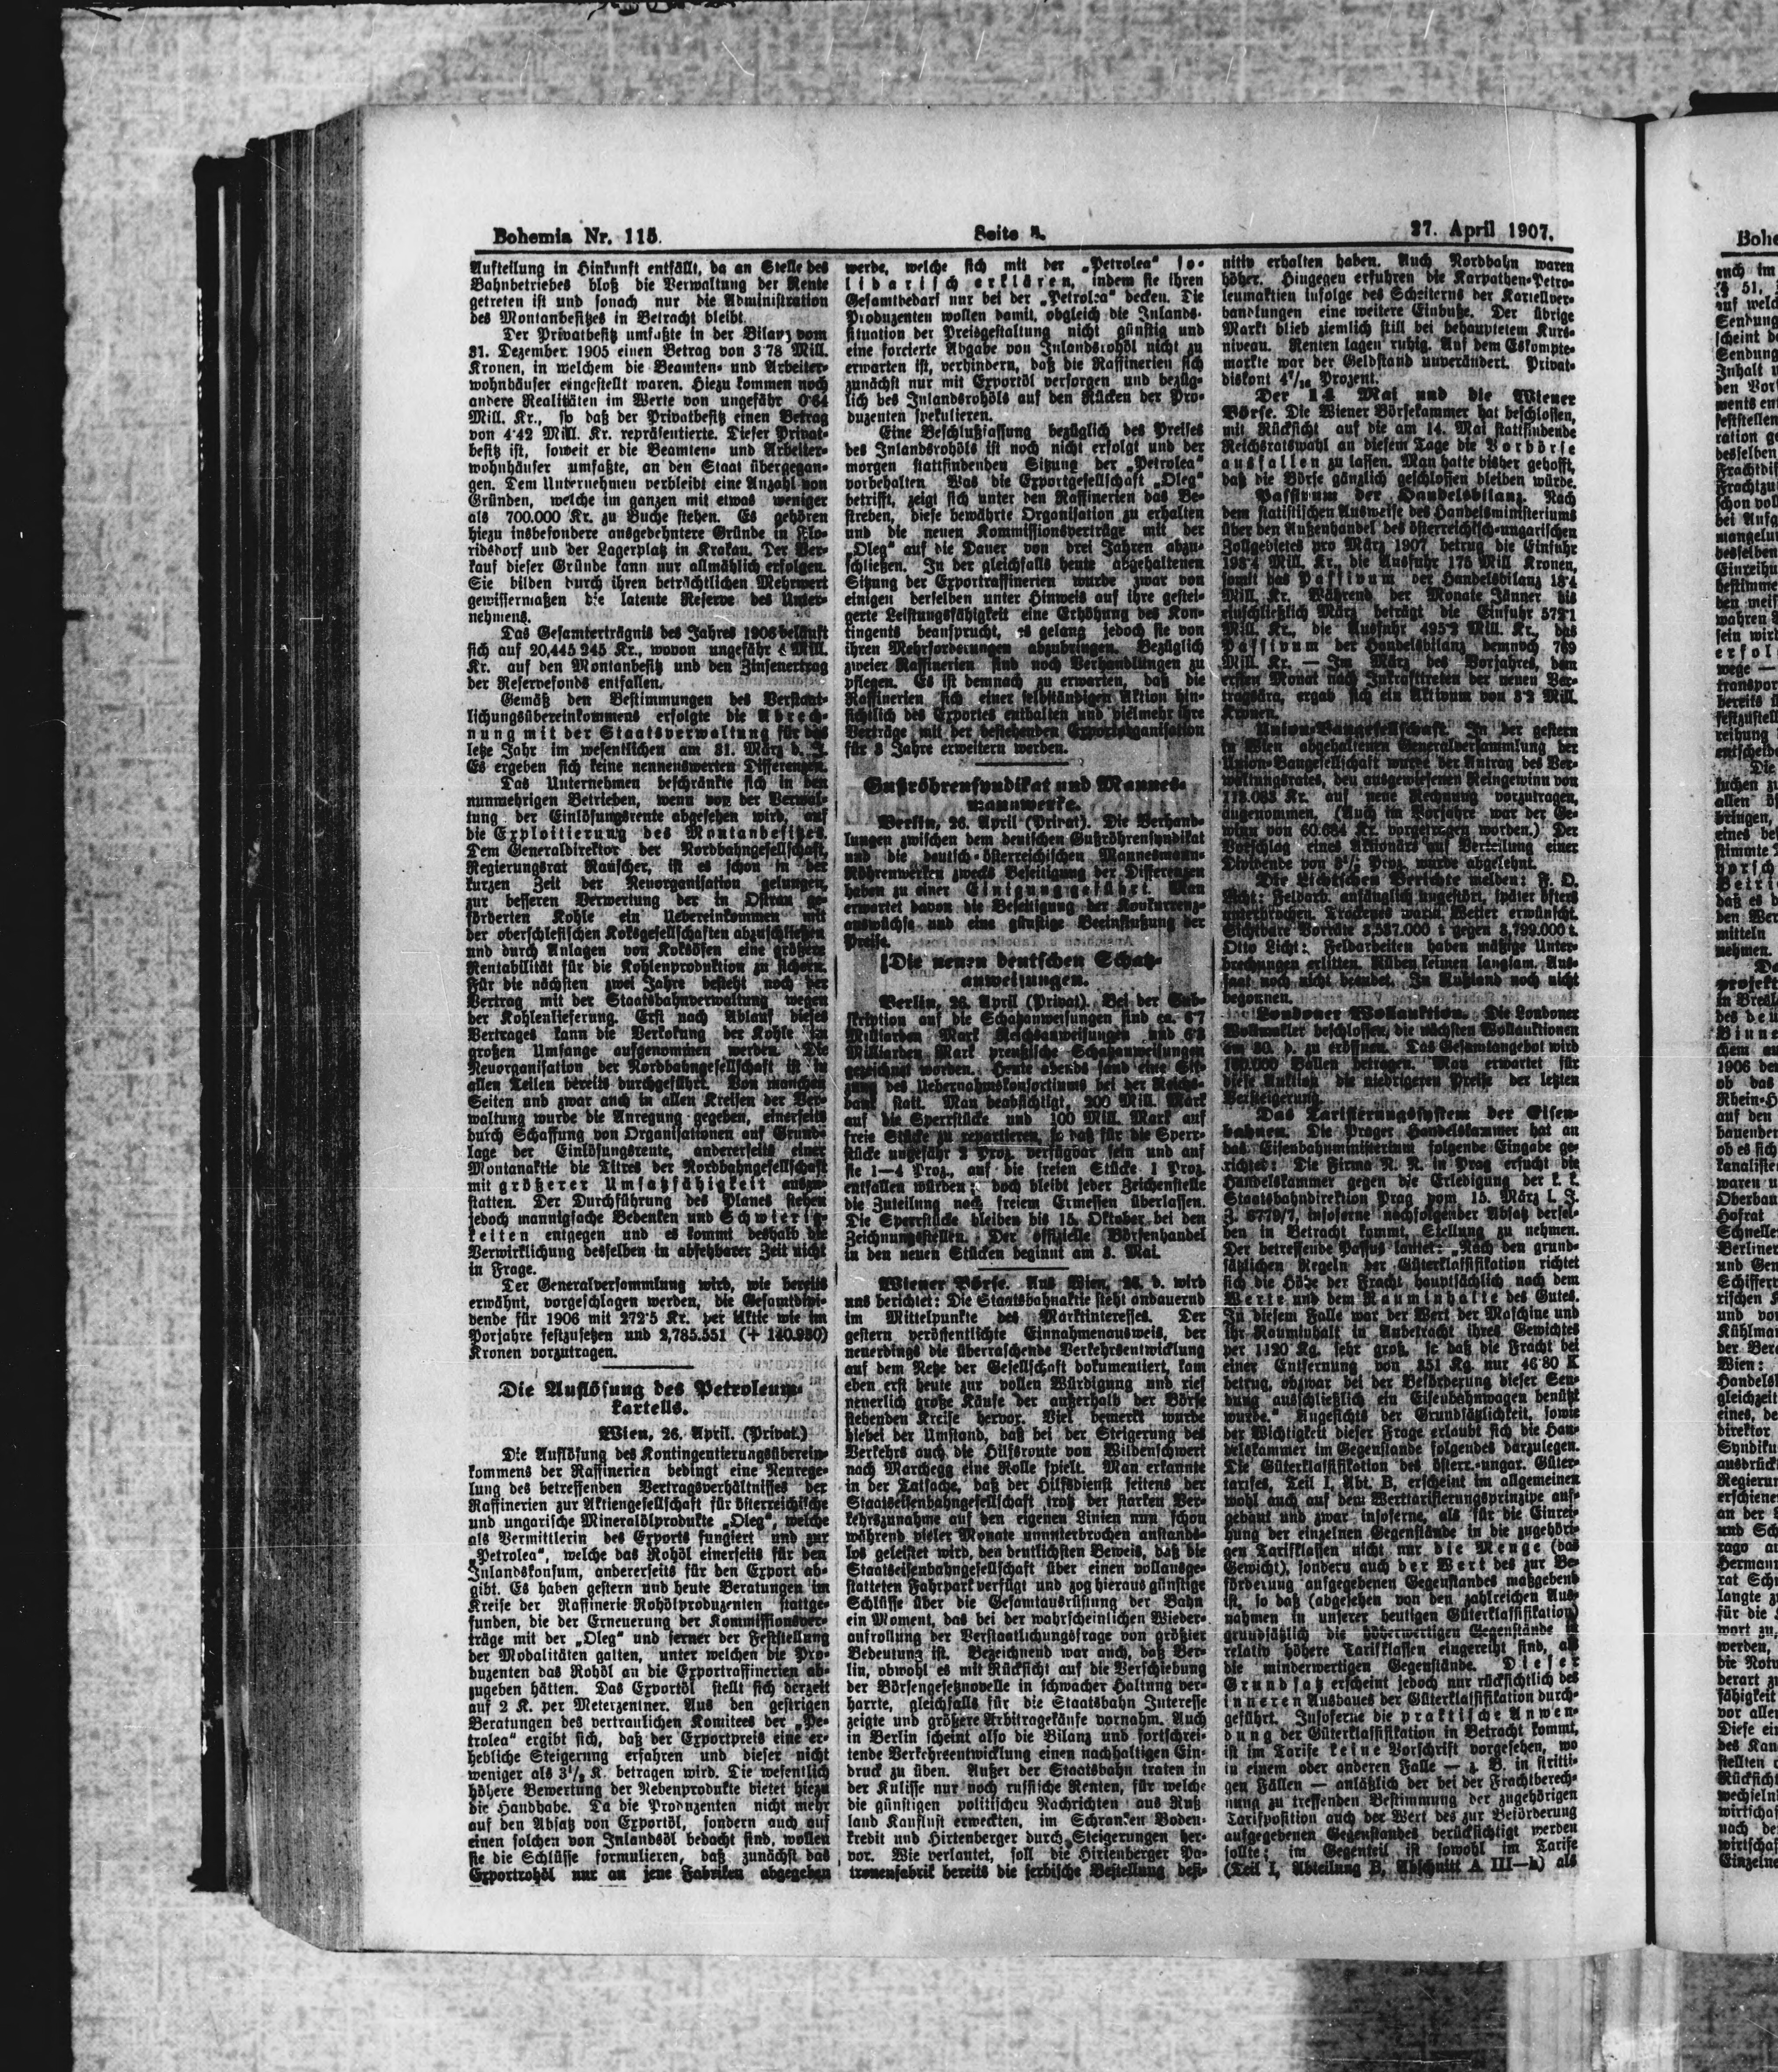 Bohemia Nr. 115.
Seite
27. April 1907.
Aufteilung in Hinkunft entfällt, da an Stelle des
Bahnbetriebes bloß die Verwaltung der Rente
getreten ist und sonach nur die Administration
des Montanbesitzes in Betracht bleibt.
Der Privatbesitz umfaßte in der Bilanz vom
31. Dezember 1905 einen Betrag von 3·78 Mill.
Kronen, in welchem die Beamten- und Arbeiter-
wohnhäuser eingestellt waren. Hiezu kommen noch
andere Realitäten im Werte von ungefähr 0·64
Mill. Kr., so daß der Privatbesitz einen Betrag
von 4·42 Mill. Kr. repräsentierte. Dieser Privat-
besitz ist, soweit er die Beamten- und Arbeiter-
wohnhäuser umfaßte, an den Staat übergegan-
gen. Dem Unternehmen verbleibt eine Anzahl von
Gründen, welche im ganzen mit etwas weniger
als 700.000 Kr. zu Buche stehen. Es gehören
hiezu insbesondere ausgedehntere Gründe in Flo-
ridsdorf und der Lagerplatz in Krakau. Der Ver-
kauf dieser Gründe kann nur allmählich erfolgen.
Sie bilden durch ihren beträchtlichen Mehrwert
gewissermaßen die latente Reserve des Unter-
nehmens.
Das Gesamterträgnis des Jahres 1906 beläuft
sich auf 20,445.245 Kr., wovon ungefähr Mill.
Kr. auf den Montanbesitz und den Zinsenertrag
der Reservefonds entfallen.
Gemäß den Bestimmungen des Verstaat-
lichungsübereinkommens erfolgte die Abrech-
nung mit der Staatsverwaltung für das
letze Jahr im wesentlichen am 31. März d. J.
Es ergeben sich keine nennenswerten Differenzen.
Das Unternehmen beschränkte sich in den
nunmehrigen Betrieben, wenn von der Verwal-
tung der Einlösungsrente abgesehen wird, auf
die Exploitierung des Montanbesitzes.
Dem Generaldirektor der Nordbahngesellschaft,
Regierungsrat Rauscher, ist es schon in der
kurzen Zeit der Neuorganisation gelungen,
zur besseren Verwertung der in Ostrau ge-
förderten Kohle ein Uebereinkommen mit
der oberschlesischen Koksgesellschaften abzuschließen
und durch Anlagen von Koksöfen eine größere
Rentabilität für die Kohlenproduktion zu sichern.
Für die nächsten zwei Jahre besteht noch der
Vertrag mit der Staatsbahnverwaltung wegen
der Kohlenlieferung. Erst nach Ablauf dieses
Vertrages kann die Verkokung der Kohle in
großen Umfange aufgenommen werden. Die
Neuorganisation der Nordbahngesellschaft ist in
allen Teilen bereits durchgeführt. Von manchen
Seiten und zwar auch in allen Kreisen der Ver-
waltung wurde die Anregung gegeben, einerseits
durch Schaffung von Organisationen auf Grund-
lage der Einlösungsrente, andererseits einer
Montanaktie die Titres der Nordbahngesellschaft
mit größerer Umsatzfähigkeit auszu-
statten. Der Durchführung des Planes stehen
jedoch mannigfache Bedenken und Schwierig-
keiten entgegen und es kommt deshalb die
Verwirklichung desselben in absehbarer Zeit nicht
in Frage.
Der Generalversammlung wird, wie bereits
erwähnt, vorgeschlagen werden, die Gesamtdivi-
dende für 1906 mit 272·5 Kr. per Aktie wie im
Vorjahre festzusetzen und 2,785.551 (+ 140.930)
Kronen vorzutragen.
Die Auflösung des Petroleum-
kartells.
Wien, 26. April. (Privat.)
Die Auflösung des Kontingentierungsüberein-
kommens der Raffinerien bedingt eine Neurege-
lung des betreffenden Vertragsverhältnisses der
Raffinerien zur Aktiengesellschaft für österreichische
und ungarische Mineralölprodukte „Oleg“, welche
als Vermittlerin des Exports fungiert und zur
„Petrolea“, welche das Rohöl einerseits für den
Inlandskonsum, andererseits für den Export ab-
gibt. Es haben gestern und heute Beratungen im
Kreise der Raffinerie-Rohölproduzenten stattge-
funden, die der Erneuerung der Kommissionsver-
träge mit der „Oleg“ und ferner der Feststellung
der Modalitäten galten, unter welchen die Pro-
duzenten das Rohöl an die Exportraffinerien ab-
zugeben hätten. Das Exportöl stellt sich derzeit
auf 2 K. per Meterzentner. Aus den gestrigen
Beratungen des vertraulichen Komitees der „Pe-
trolea“ ergibt sich, daß der Exportpreis eine er-
hebliche Steigerung erfahren und dieser nicht
weniger als 3½ K. betragen wird. Die wesentlich
höhere Bewertung der Nebenprodukte bietet hiezu
die Handhabe. Da die Produzenten nicht mehr
auf den Absatz von Exportöl, sondern auch auf
einen solchen von Inlandsöl bedacht sind, wollen
sie die Schlüsse formulieren, daß zunächst das
Exportrohöl nur an jene Fabriken abgegeben
werde, welche sich mit der „Petrolea“ so-
lidarisch erklären, indem sie ihren
Gesamtbedarf nur bei der „Petrolea“ decken. Die
Produzenten wollen damit, obgleich die Inlands-
situation der Preisgestaltung nicht günstig und
eine forcierte Abgabe von Inlandsrohöl nicht zu
erwarten ist, verhindern, daß die Raffinerien sich
zunächst nur mit Exportöl versorgen und bezüg-
lich des Inlandsrohöls auf den Rücken der Pro-
duzenten spekulieren.
Eine Beschlußfassung bezüglich des Preises
des Inlandsrohöls ist noch nicht erfolgt und der
morgen stattfindenden Sitzung der „Petrolea“
vorbehalten. Was die Exportgesellschaft „Oleg“
betrifft, zeigt sich unter den Raffinerien das Be-
streben, diese bewährte Organisation zu erhalten
und die neuen Kommissionsverträge mit der
„Oleg“ auf die Dauer von drei Jahren abzu-
schließen. In der gleichfalls heute abgehaltenen
Sitzung der Exportraffinerien wurde zwar von
einigen derselben unter Hinweis auf ihre gestei-
gerte Leistungsfähigkeit eine Erhöhung des Kon-
tingents beansprucht, es gelang jedoch sie von
ihren Mehrforderungen abzubringen. Bezüglich
zweier Raffinerien sind noch Verhandlungen zu
pflegen. Es ist demnach zu erwarten, daß die
Raffinerien sich einer selbständigen Aktion hin-
sichtlich des Exportes enthalten und vielmehr ihre
Verträge mit der bestehenden Exportorganisation
für 3 Jahre erweitern werden.
Gußröhrensyndikat und Mannes-
mannwerke.
Berlin, 26. April (Privat). Die Verhand-
lungen zwischen dem deutschen Gußröhrensyndikat
und die deutsch-österreichischen Mannesmann-
Röhrenwerken zwecks Beseitigung der Differenzen
haben zu einer Einigung geführt. Man
erwartet davon die Beseitigung der Konkurrenz-
auswüchse und eine günstige Beeinflußung der
Preise.
Die neuen deutschen Schatz-
anweisungen.
Berlin, 26. April (Privat). Bei der Sub-
skription auf die Schatzanweisungen sind ca. 6·7
Milliarden Mark Reichsanweisungen und
Milliarden Mark preußische Schatzanweisungen
gezeichnet worden. Heute abends fand eine Sit-
zung des Uebernahmskonsortiums bei der Reichs-
bank statt. Man beabsichtigt, 200 Mill. Mark
auf die Sperrstücke und 100 Mill. Mark auf
freie Stücke zu repartieren, so daß für die Sperr-
stücke ungefähr 2 Proz. verfügbar sein und auf
sie 1—4 Proz., auf die freien Stücke 1 Proz.
entfallen würden; doch bleibt jeder Zeichenstelle
die Zuteilung nach freiem Ermessen überlassen.
Die Sperrstücke bleiben bis 15. Oktober bei den
Zeichnungsstellen. Der offizielle Börsenhandel
in den neuen Stücken beginnt am 8. Mai.
Wiener Börse. Aus Wien, 26. d. wird
uns berichtet: Die Staatsbahnaktie steht andauernd
im Mittelpunkte des Marktinteresses. Der
gestern veröffentlichte Einnahmenausweis, der
neuerdings die überraschende Verkehrsentwicklung
auf dem Netze der Gesellschaft dokumentiert, kam
eben erst heute zur vollen Würdigung und rief
neuerlich große Käufe der außerhalb der Börse
stehenden Kreise hervor. Viel bemerkt wurde
hiebei der Umstand, daß bei der Steigerung des
Verkehrs auch die Hilfsroute von Wildenschwert
nach Marchegg eine Rolle spielt. Man erkannte
in der Tatsache, daß der Hilfsdienst seitens der
Staatseisenbahngesellschaft trotz der starken Ver-
kehrszunahme auf den eigenen Linien nun schon
während vieler Monate ununterbrochen anstands-
los geleistet wird, den deutlichsten Beweis, daß die
Staatseisenbahngesellschaft über einen vollausge-
statteten Fahrpark verfügt und zog hieraus günstige
Schlüsse über die Gesamtausrüstung der Bahn
ein Moment, das bei der wahrscheinlichen Wieder-
aufrollung der Verstaatlichungsfrage von größter
Bedeutung ist. Bezeichnend war auch, daß Ber-
lin, obwohl es mit Rücksicht auf die Verschiebung
der Börsengesetznovelle in schwacher Haltung ver-
harrte, gleichfalls für die Staatsbahn Interesse
zeigte und größere Arbitragekäufe vornahm. Auch
in Berlin scheint also die Bilanz und fortschrei-
tende Verkehrsentwicklung einen nachhaltigen Ein-
druck zu üben. Außer der Staatsbahn traten in
der Kulisse nur noch russische Renten, für welche
die günstigen politischen Nachrichten aus Ruß
land Kauflust erweckten, im Schranken Boden-
kredit und Hirtenberger durch Steigerungen her-
vor. Wie verlautet, soll die Hirtenberger Pa-
tronenfabrik bereits die serbische Bestellung defi-
nitiv erhalten haben. Auch Nordbahn waren
höher. Hingegen erfuhren die Karpathen-Petro-
leumaktien infolge des Scheiterns der Kartellver-
handlungen eine weitere Einbuße. Der übrige
Markt blieb ziemlich still bei behauptetem Kurs-
niveau. Renten lagen ruhig. Auf dem Eskompte-
markte war der Geldstand unverändert. Privat-
diskont 4⁷/₁₆ Prozent.
Der 14. Mai und die Wiener
Börse. Die Wiener Börsekammer hat beschlossen,
mit Rücksicht auf die am 14. Mai stattfindende
Reichsratswahl an diesem Tage die Vorbörse
ausfallen zu lassen. Man hatte bisher gehofft,
daß die Börse gänzlich geschlossen bleiben würde.
Passivum der Handelsbilanz. Nach
dem statistischen Ausweise des Handelsministeriums
über den Außenhandel des österreichisch-ungarischen
Zollgebietes pro März 1907 betrug die Einfuhr
193·4 Mill. Kr., die Ausfuhr 175 Mill. Kronen,
somit das Passivum der Handelsbilanz 18·4
Mill. Kr. Während der Monate Jänner bis
einschließlich März beträgt die Einfuhr 572·1
Mill. Kr., die Ausfuhr 495·2 Mill. Kr., das
Passivum der Handelsbilanz demnach 76·9
Mill. Kr. — Im März des Vorjahres, dem
ersten Monat nach Inkrafttreten der neuen Ver-
tragsära, ergab sich ein Aktivum von Mill.
Kronen.
Union-Baugesellschaft. In der gestern
in Wien abgehaltenen Generalversammlung der
Union-Baugesellschaft wurde der Antrag des Ver-
waltungsrates, den ausgewiesenen Reingewinn von
Kr. auf neue Rechnung vorzutragen,
angenommen. (Auch im Vorjahre war der Ge-
winn von 60.684 Kr. vorgetragen worden.) Der
Vorschlag eines Aktionärs auf Verteilung einer
Dividende von Proz. wurde abgelehnt.
Die Lichtschen Berichte melden: F. O.
Licht: Feldarb. anfänglich ungestört, später öfters
unterbrochen. Trockenes warm. Wetter erwünscht.
Sichtbare Vorräte 3,587.000 t gegen 3,799.000 t.
Otto Licht: Feldarbeiten haben mäßige Unter-
brechungen erlitten. Rüben keimen langsam. Aus-
saat noch nicht beendet. In Rußland noch nicht
begonnen.
Londoner Wollauktion. Die Londoner
Wollmakler beschlossen, die nächsten Wollauktionen
am 30. d. zu eröffnen. Das Gesamtangebot wird
Ballen betragen. Man erwartet für
diese Auktion die niedrigeren Preise der letzten
Versteigerung.
Das Tarifierungssystem der Eisen-
bahnen. Die Prager Handelskammer hat an
das Eisenbahnministerium folgende Eingabe ge-
richtet: Die Firma N. N. in Prag ersucht die
Handelskammer gegen die Erledigung der k. k.
Staatsbahndirektion Prag vom 15. März l. J.
Z. 6779/7, insoferne nachfolgender Absatz dersel-
ben in Betracht kommt, Stellung zu nehmen.
Der betreffende Passus lautet: „Nach den grund-
sätzlichen Regeln der Güterklassifikation richtet
sich die Höhe der Fracht hauptsächlich nach dem
Werte und dem Rauminhalte des Gutes.
In diesem Falle war der Wert der Maschine und
ihr Rauminhalt in Anbetracht ihres Gewichtes
per 1120 Kg. sehr groß, so daß die Fracht bei
einer Entfernung von 251 Kg. nur 46·80 K
betrug, obzwar bei der Beförderung dieser Sen-
dung ausschließlich ein Eisenbahnwagen benützt
wurde.“ Angesichts der Grundsätzlichkeit, sowie
der Wichtigkeit dieser Frage erlaubt sich die Han-
delskammer im Gegenstande folgendes darzulegen.
Die Güterklassifikation des österr.-ungar. Güter-
tarifes, Teil I, Abt. B, erscheint im allgemeinen
wohl auch auf dem Werttarifierungsprinzipe auf-
gebaut und zwar insoferne, als für die Einrei-
hung der einzelnen Gegenstände in die zugehöri-
gen Tarifklassen nicht nur die Menge (das
Gewicht), sondern auch der Wert des zur Be-
förderung aufgegebenen Gegenstandes maßgebend
ist, so daß (abgesehen von den zahlreichen Aus-
nahmen in unserer heutigen Güterklassifikation)
grundsätzlich die höherwertigen Gegenstände in
relativ höhere Tarifklassen eingereiht sind, als
die minderwertigen Gegenstände. Dieser
Grundsatz erscheint jedoch nur rücksichtlich des
inneren Ausbaues der Güterklassifikation durch-
geführt. Insoferne die praktische Anwen-
dung der Güterklassifikation in Betracht kommt,
ist im Tarife keine Vorschrift vorgesehen, wo
in einem oder anderen Falle — z. B. in stritti-
gen Fällen — anläßlich der bei der Frachtberech-
nung zu treffenden Bestimmung der zugehörigen
Tarifposition auch der Wert des zur Beförderung
aufgegebenen Gegenstandes berücksichtigt werden
sollte; im Gegenteil ist sowohl im Tarife
(Teil I, Abteilung B, Abschnitt A III—h) als